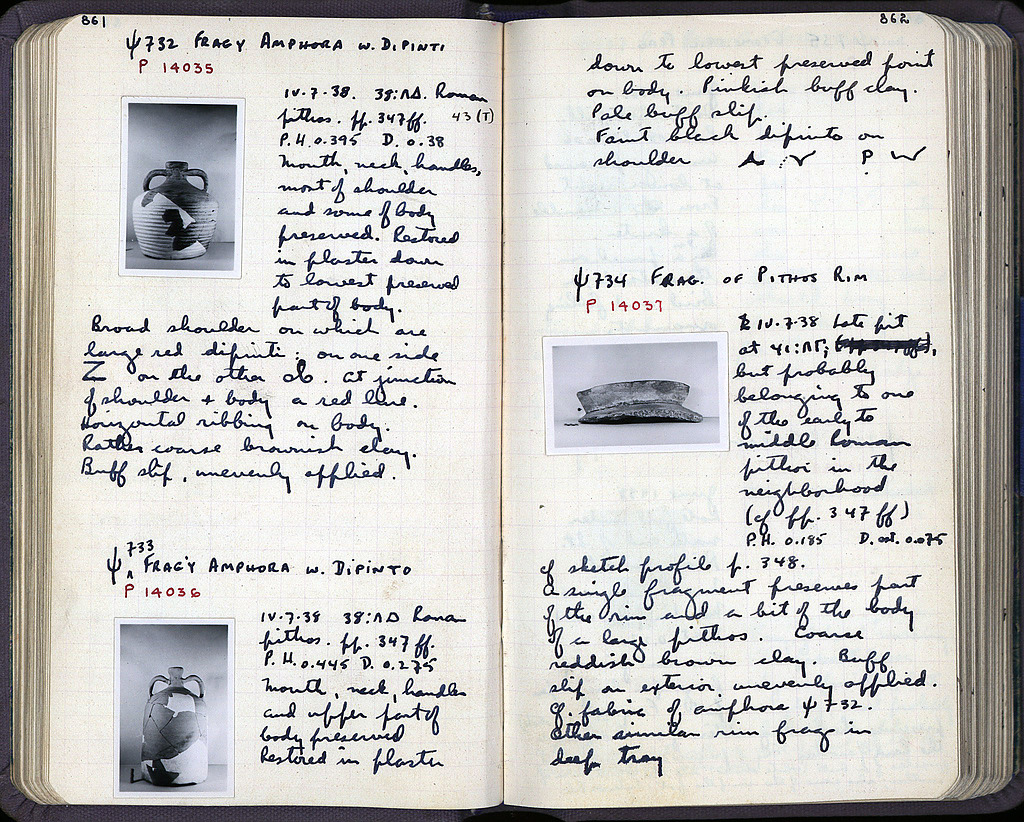 861
ψ732 FRAGY AMPHORA W. DIPINTI
P 14035
IV.7.38. 38:ΛΔ. Roman
pithos. pp. 347 ff. 43 (T)
P.H. 0.395 D. 0.38
Mouth, neck, handles,
most of shoulder
and some of body
preserved. Restored
in plaster down
to lowest preserved
part of body.
Broad shoulder on which are
large red dipinti: on one side
Z on the other . At junction
of shoulder + body a red line.
Horizontal ribbing on body.
Rather coarse brownish clay.
Buff slip, unevenly applied.
ψ733 FRAGY AMPHORA W. DIPINTO
P 14036
IV.7.38 38:ΛΔ Roman
pithos. pp. 347 ff.
P.H. 0.445 D. 0.275
Mouth, neck, handles
and upper part of
body preserved
Restored in plaster
862
down to lowest preserved point
on body. Pinkish buff clay.
Pale buff slip.
Faint black dipinto on
shoulder
ψ734 FRAG. OF PITHOS RIM
P 14037
IV.7.38 Late pit
at 41:ΛΓ,
but probably
belonging to one
of the early to
middle Roman
pithoi in the
neighborhood
(cf pp. 347 ff)
P.H. 0.185 D. est. 0.075
cf sketch profile p. 348.
A single fragment preserves part
of the rim and a bit of the body
of a large pithos. Coarse
reddish brown clay. Buff
slip on exterior, unevenly applied.
Cf. fabric of amphora ψ732.
Other similar rim frags in
deep tray